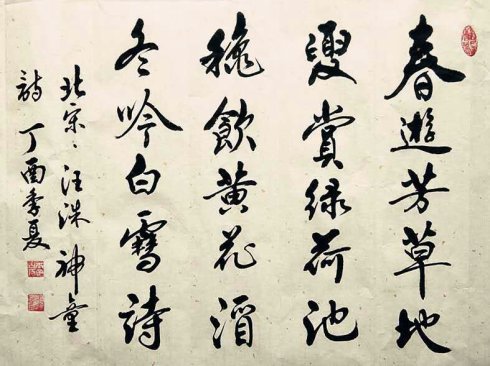 春遊芳草地
夏賞绿荷池
穐飲黄花酒
冬吟白雪詩
北宋、汪洙神童
詩 丁酉季夏